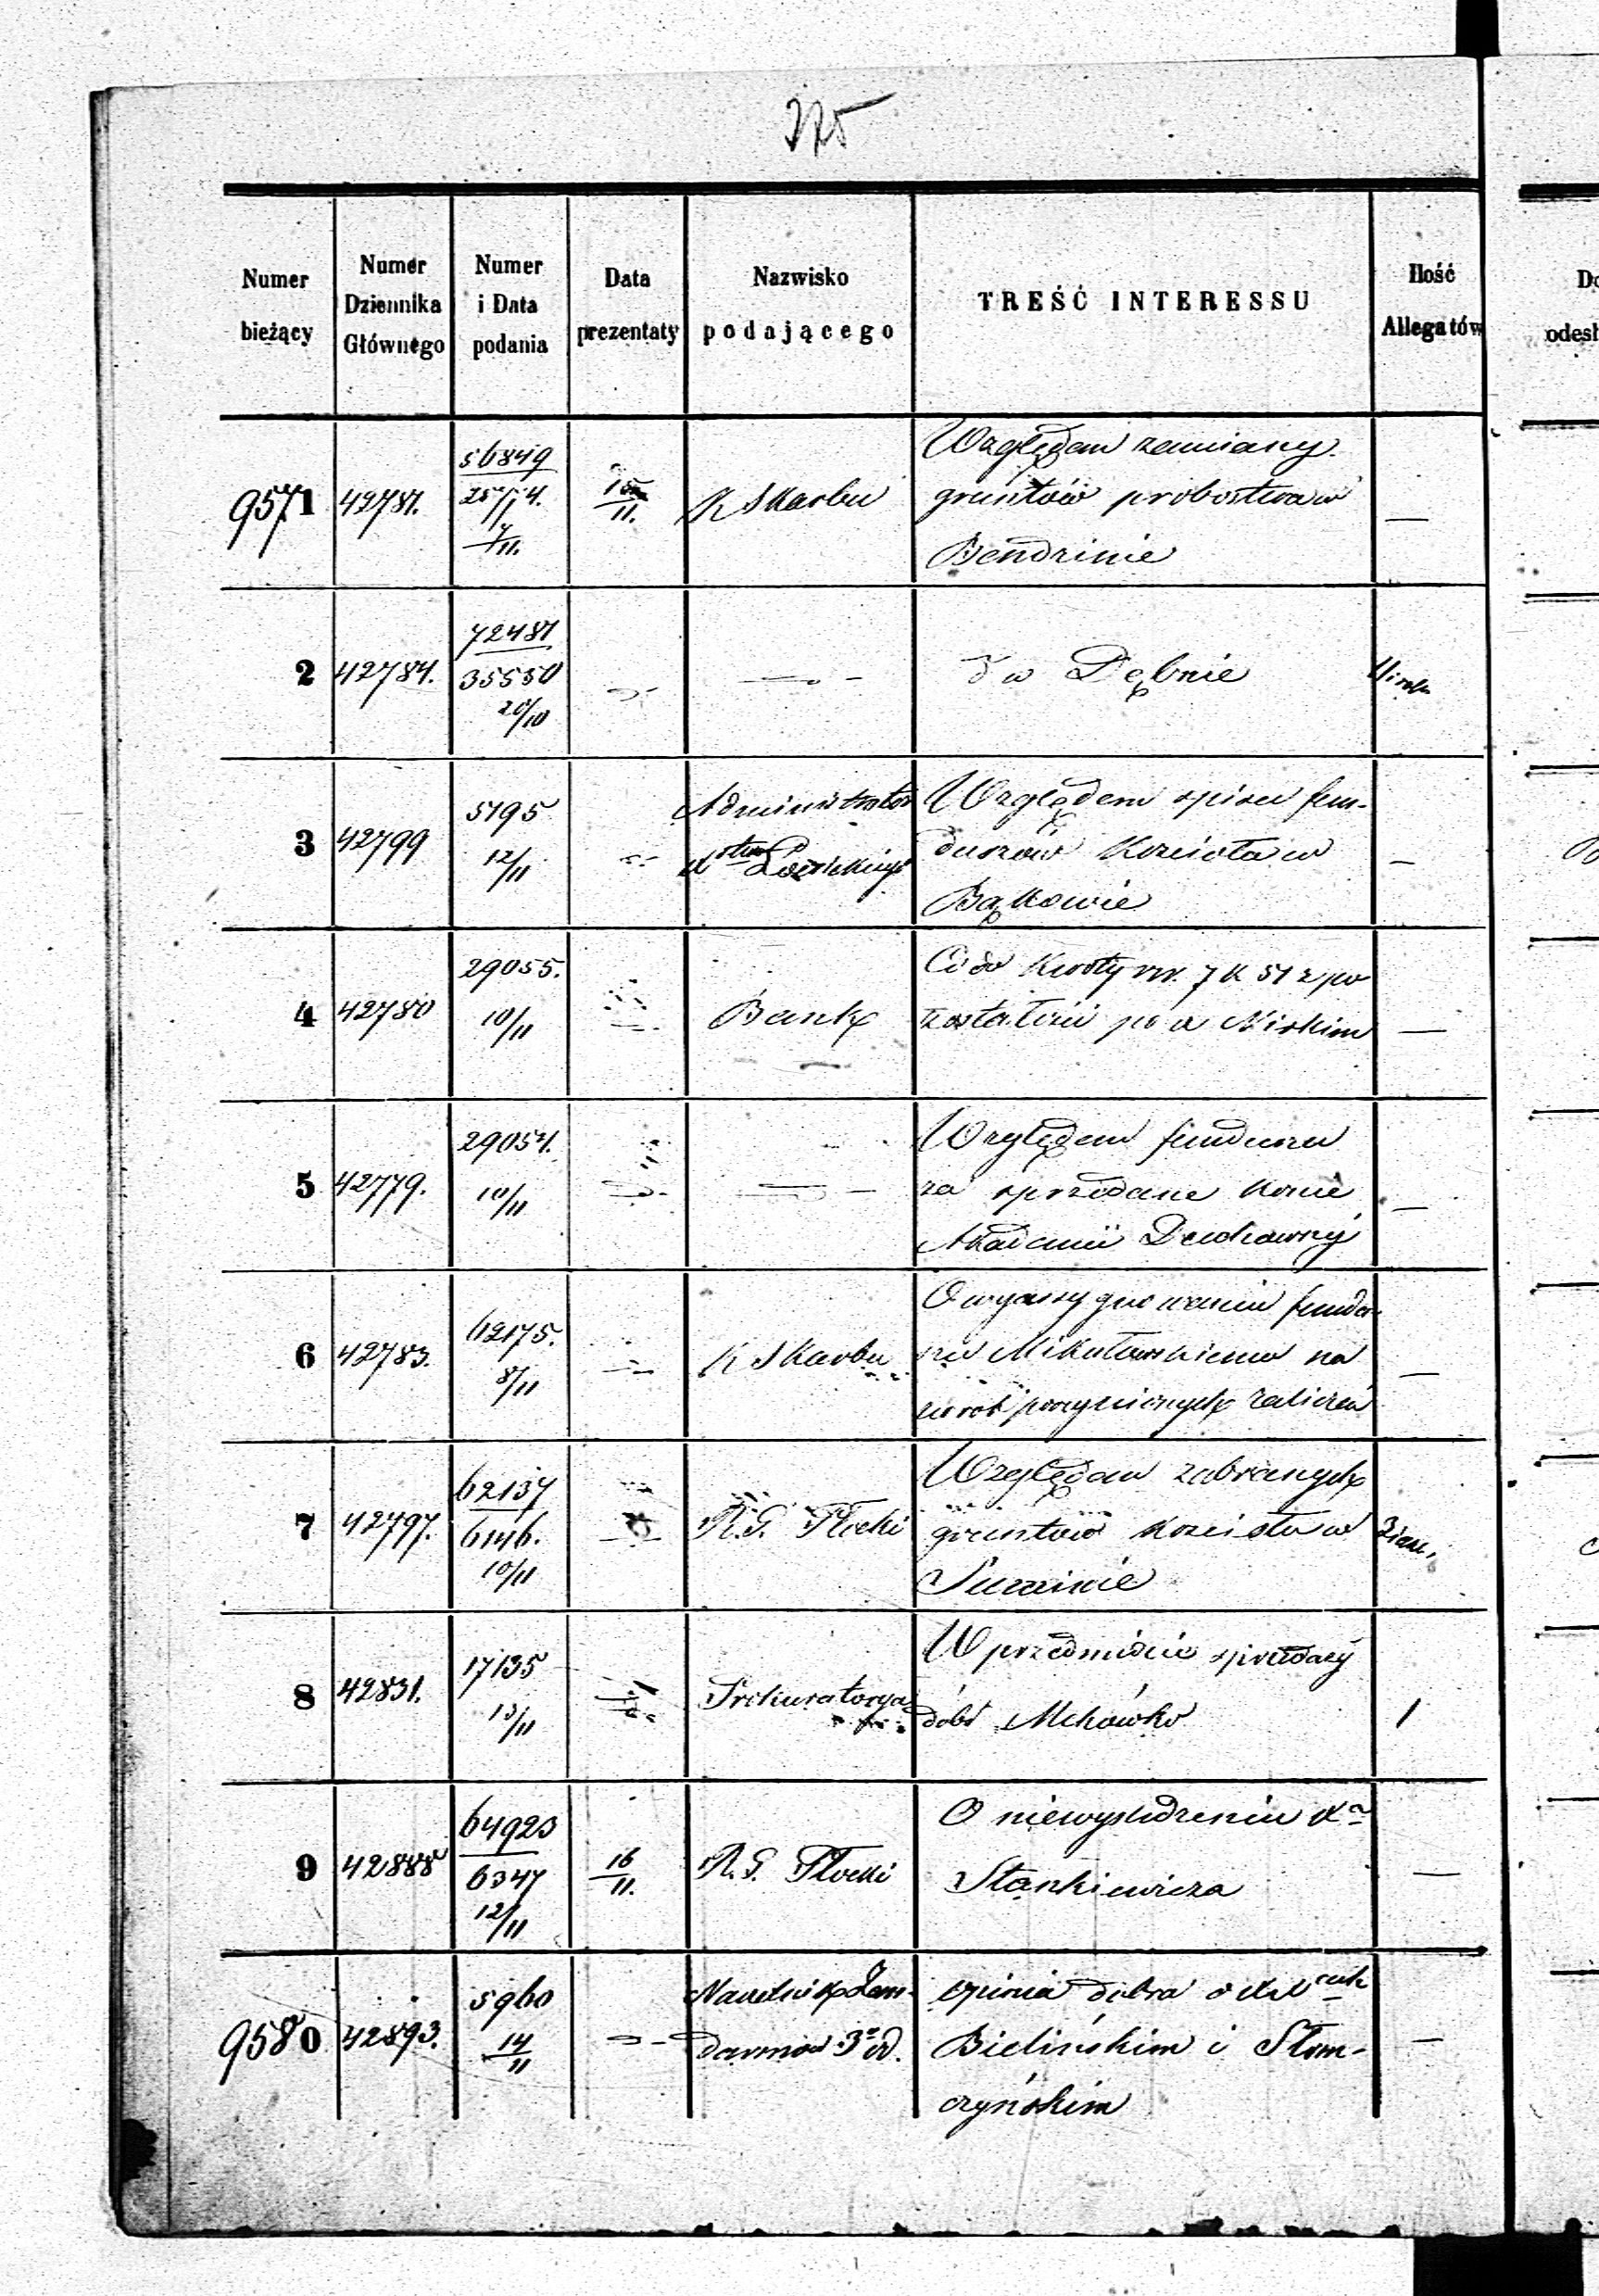 375
Numer bieżący
Numer Dziennika Głównego
Numer i Data podania
Data prezentaty
Nazwisko podającego
TREŚĆ INTERESSU
Ilość Allegatów
9571
42781.
56849
15/11.
K Skarbu
Względem zamiany
gruntów probostwa w
Bendzinie
—
2
42784.
72487
35550
20/10
w Dębnie
3
42799
5195
12/11
Administrator
Xstwa Łowickiego
Względem spisu fun-
duszów Kościoła w
Bąkowie
—
4
42780
29055.
10/11
Bank
Co do Kwoty rsr. 7 K 51 z po
zostałości po
—
5
42779.
29054.
10/11
Względem funduszu
za sprzedane konie
Akademii Duchownéj
—
6
42783.
62175.
8/11
K Skarbu
O wyassygnowanie fundu-
szu Mikułowskiemu na
—
7
42797.
62137
6146.
10/11
R. G. Płocki
Względem zabranych
gruntów kościoła w
8
42831.
17135
13/11
Prokuratorya
W przedmiocie sprzedaży
dóbr
1
9
42888
64923
6347
12/11
16/11.
R. G. Płocki
O niewyśledzeniu Xa
Stankiewicza
—
9580
42893.
5960
14/11
Naczelnik Żan-
darmów 3o
opinia dobra o
Bielińskim i Słom-
czyńskim
—